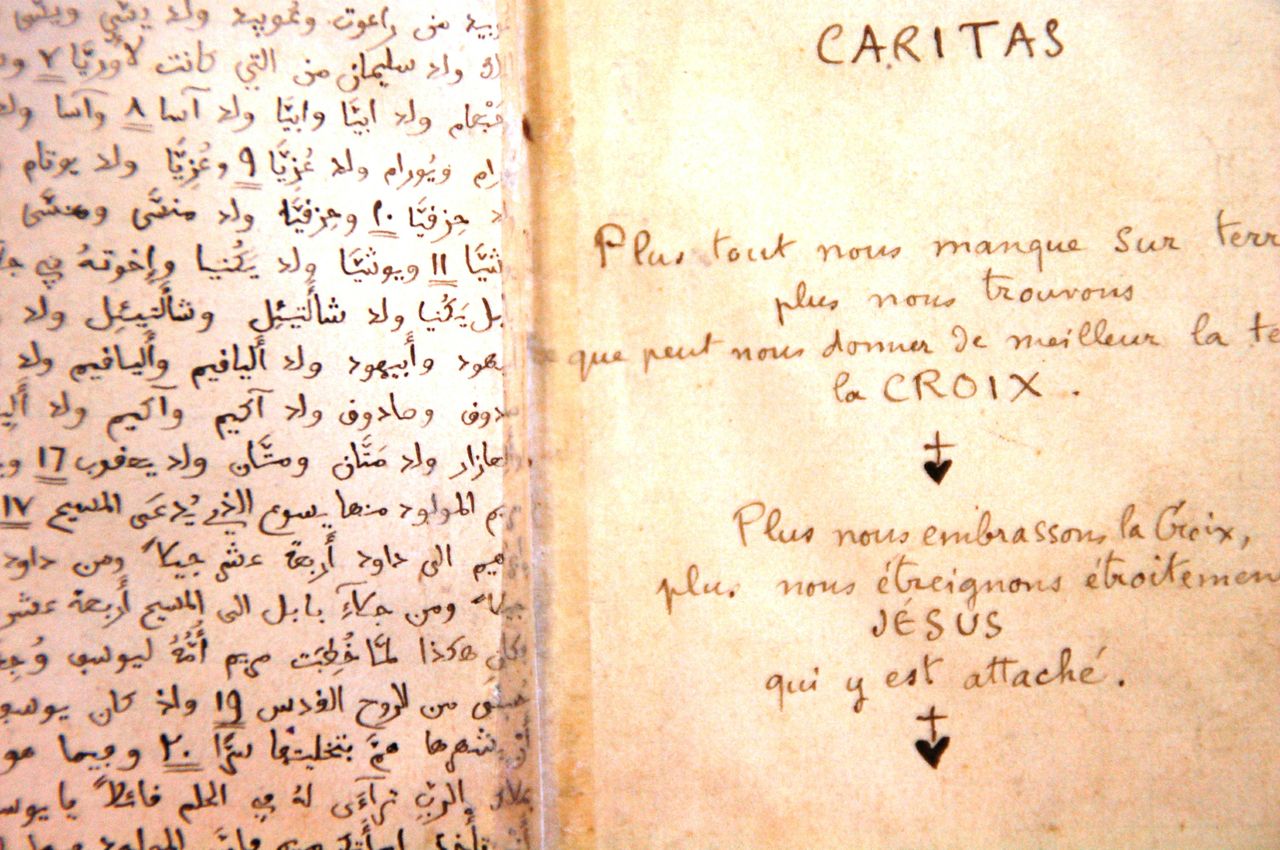 وبيد من راعوت وعوبيد ولد يسّي ويسّى
ولد سليمان من التي كانت لأوريّا ٧
ولد ابيّا وابيّا ولد آسا ٨ وآسا
ويُورام ولد عُزِيَّا ٩ وعُزِيَّا ولد يوتام
حِزقيَّا ١٠ وحِزقيَّا ولد منسَّى ومنسَّى
١١ ويوشيَّا ولد يَكُنيا وإخوتهُ في
بل يَكُنيا ولد شألتيئِل وشألتيئِل ولد
وأبيهود ولد ألياقيم وألياقيم ولد
وصادوق ولد آكيم وآكيم ولد
العازار ولد مَتَّان ومتَّان ولد يعقوب ١٦
المولود منها يسوع الذي يُدعَى المسيح ١٧
الى داود أربعة عشر جيلاً ومن داود
ومن جلآء بابل الى المسيح أربعة عشر
هكذا لمَّا خُطِبَت مريم أُمُّهُ ليوسف
من الروح القدس ١٩ واذ كان يوسف
يشهرها همَّ بتخليتها سرًّا ٢٠ وفيما هو
الربّ تراءَى لهُ في الحلم قائلاً يا يوسف
المولود
CARITAS
Plus tout nous manque sur terr
plus nous trouvons
que peut nous donner de meilleur la te
la CROIX.
Plus nous embrassons la Croix,
plus nous étreignons étroitemen
JÉSUS
qui y est attaché.